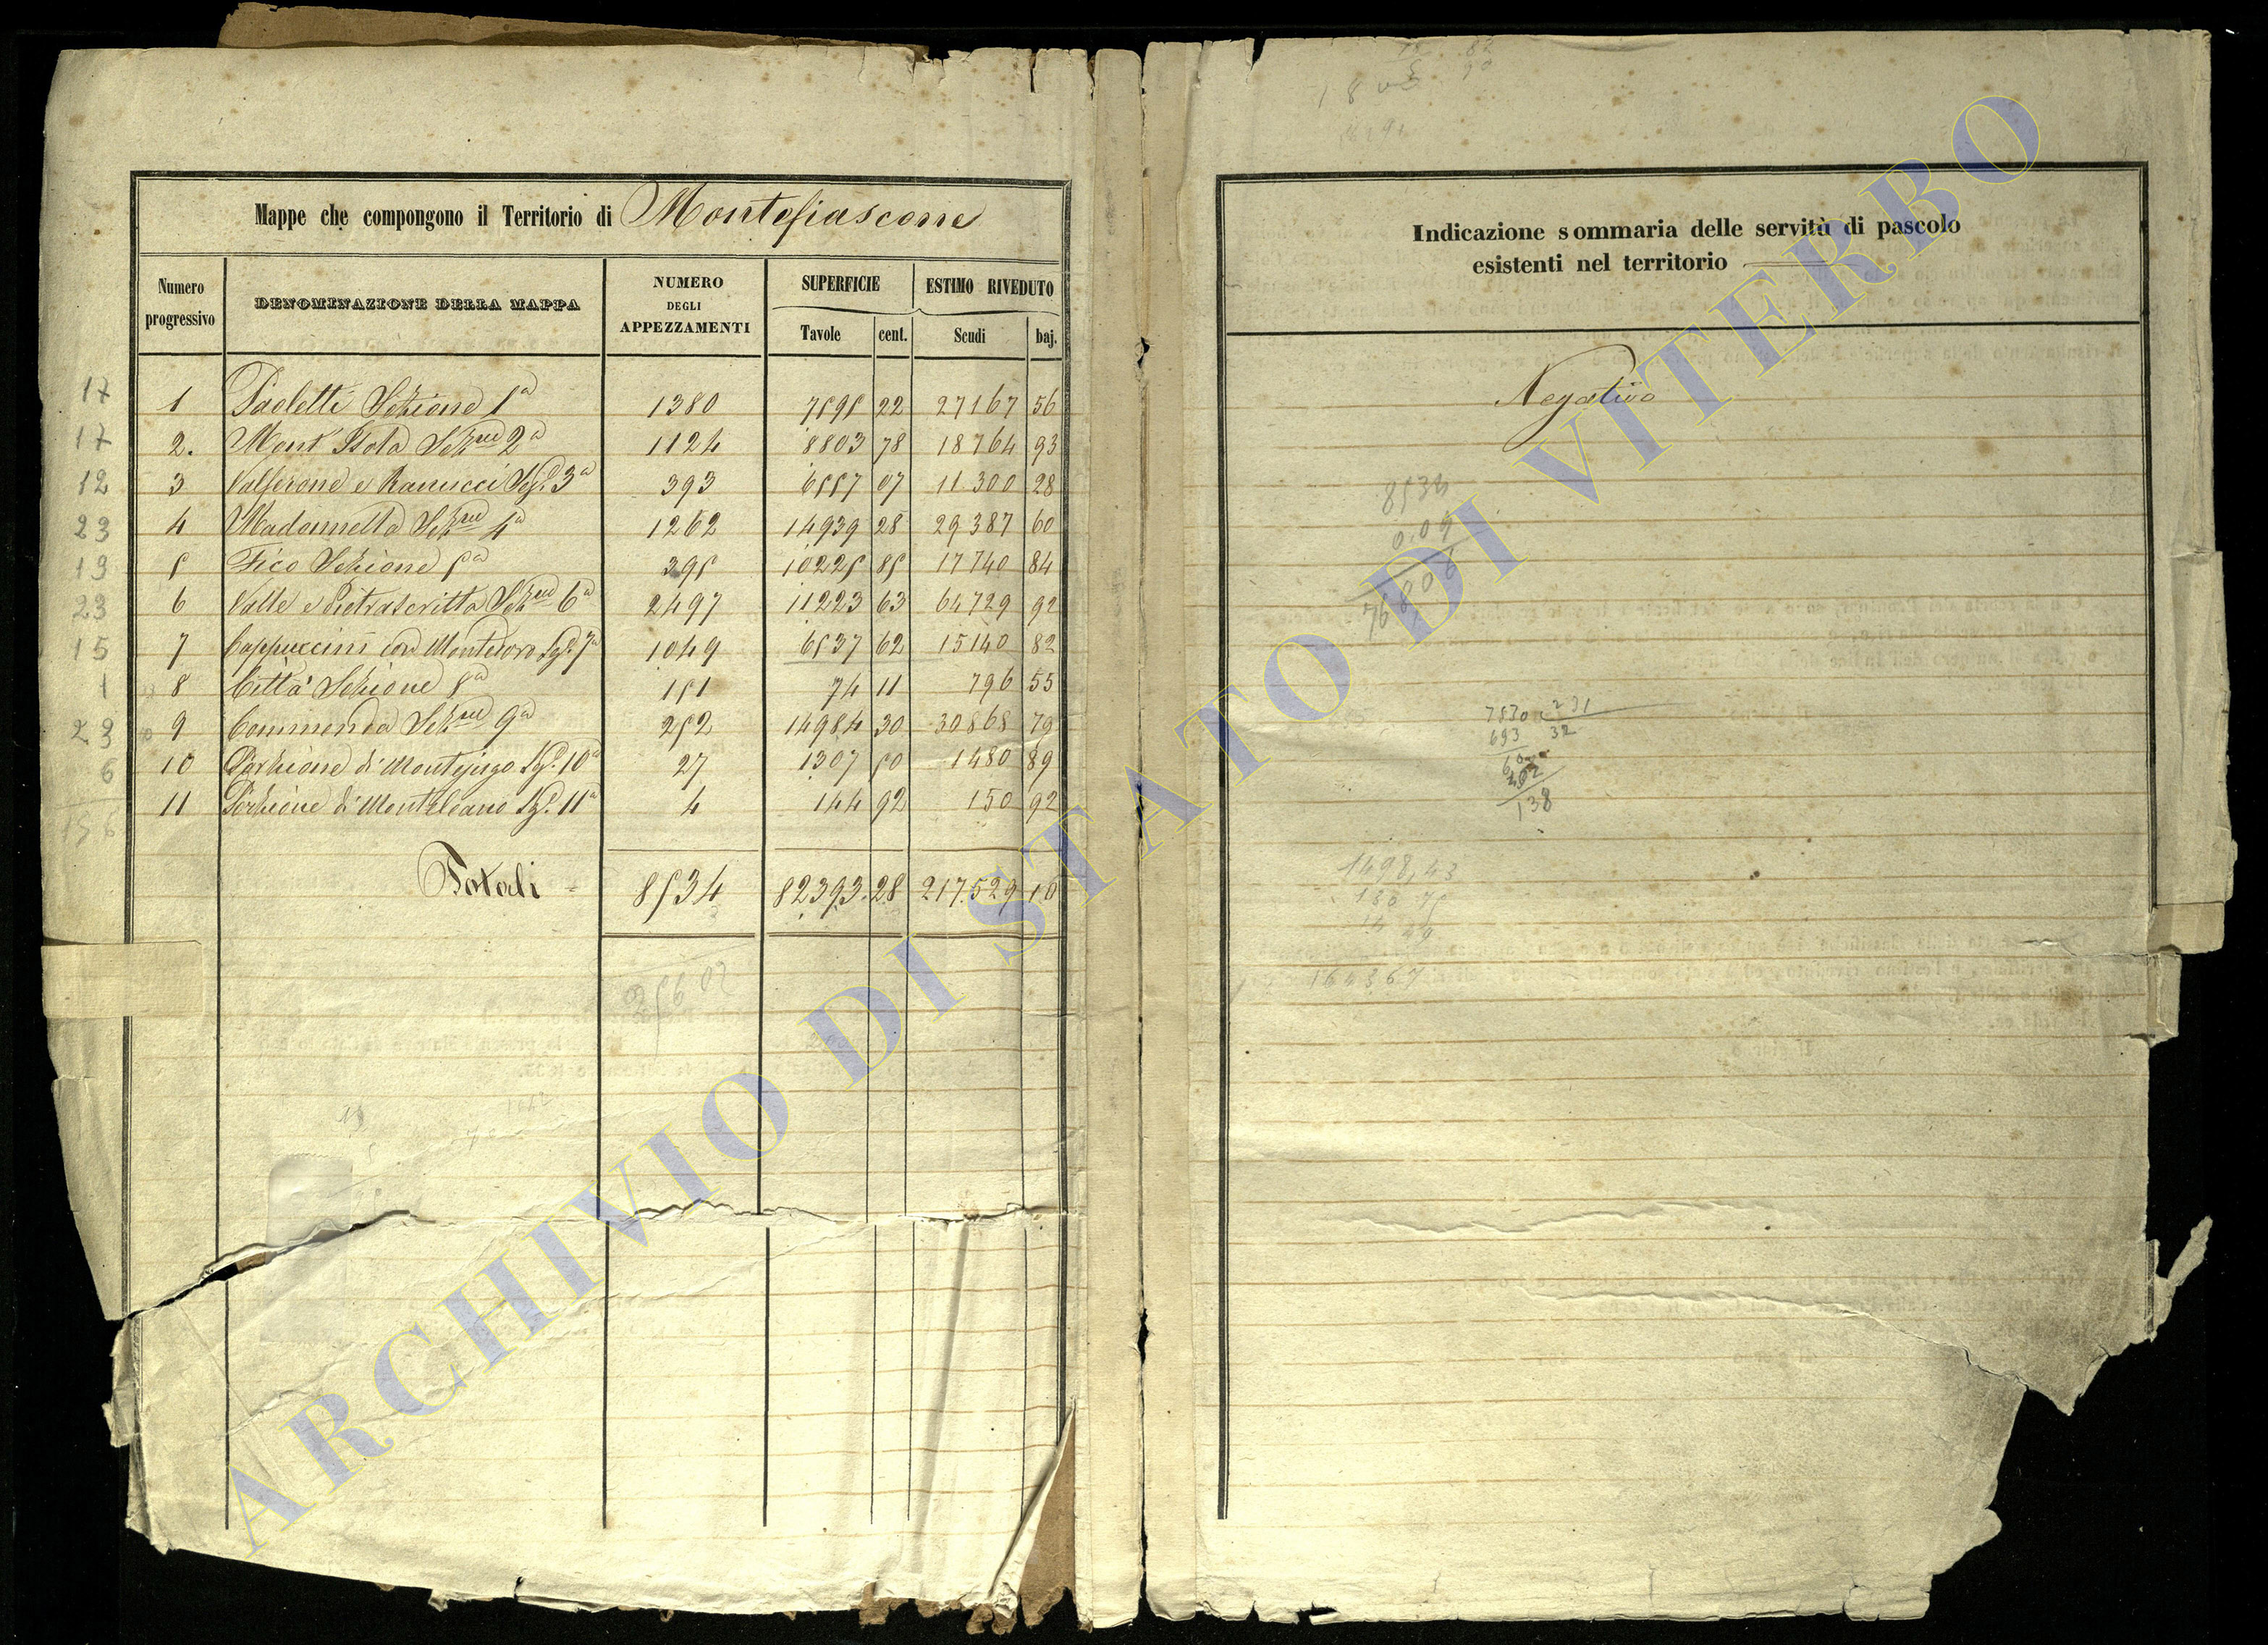 Mappe che compongono il Territorio di Montefiascone
Numero progressivo | DENOMINAZIONE DELLA MAPPA | NUMERO DEGLI APPEZZAMENTI | SUPERFICIE | ESTIMO RIVEDUTO
Tavole | cent. | Scudi | baj.
17 1 Paoletti Sezione 1a 1380 7595 22 27167 56
17 2. Mont'Isola Sezne 2a 1124 8803 78 18764 93
12 3 Valserone e Ranucci Sez. 3a 393 6557 07 11300 28
23 4 Madonnella Sezne 4a 1262 14939 28 29387 60
19 5 Fico Sezione 5a 395 10225 85 17740 84
23 6 Valle e Pietrascritta Sezne 6a 2497 11223 63 64729 92
15 7 Cappuccini con Montedoro Sez. 7a 1049 6537 62 15140 82
1 8 Città Sezione 8a 151 74 11 796 55
23 9 Commenda Sezne 9a 252 14984 30 30868 79
6 10 Porzione di Montejugo Sez. 10a 27 1307 50 1480 89
11 Porzione di Montaleano Sez. 11a 4 144 92 150 92
156
Totali 8534 82393.28 217.529 10
25602
Indicazione sommaria delle servitù di pascolo
esistenti nel territorio
Negativo
8534
0.09
76806
7530 231
693 32
600
462
138
1498,43
130 75
164367
ARCHIVIO DI STATO DI VITERBO